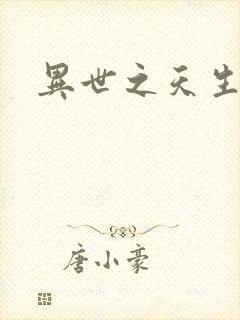 異世之天生
唐小豪